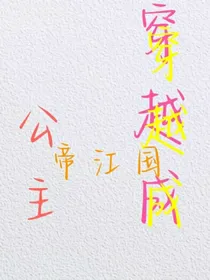 穿越成
帝江国
公主